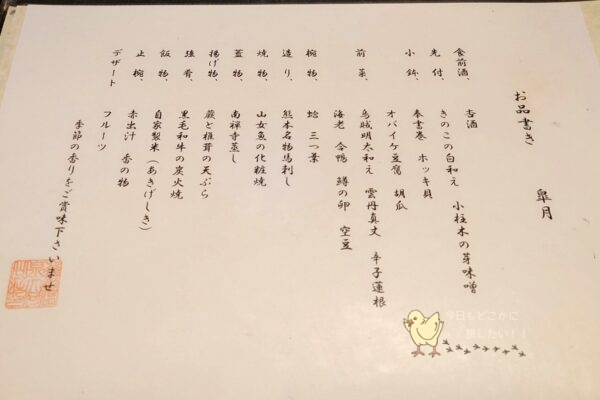 お品書き　皐月
食前酒、　杏酒
先付、　きのこの白和え　小柱木の芽味噌
小鉢、　春書巻　ホッキ貝
オバイケ豆腐　胡瓜
前菜、　烏賊明太和え　雲丹真丈　辛子蓮根
海老　合鴨　鱒の卵　空豆
椀物、　蛤　三つ葉
造り、　熊本名物馬刺し
焼物、　山女魚の化粧焼
蓋物、　南禅寺蒸し
揚げ物、　蕨と椎茸の天ぷら
強肴、　黒毛和牛の炭火焼
飯物、　自家製米（あきげしき）
止椀、　赤出汁　香の物
デザート　フルーツ
季節の香りをご賞味下さいませ
今日もどこかに
旅したい！！